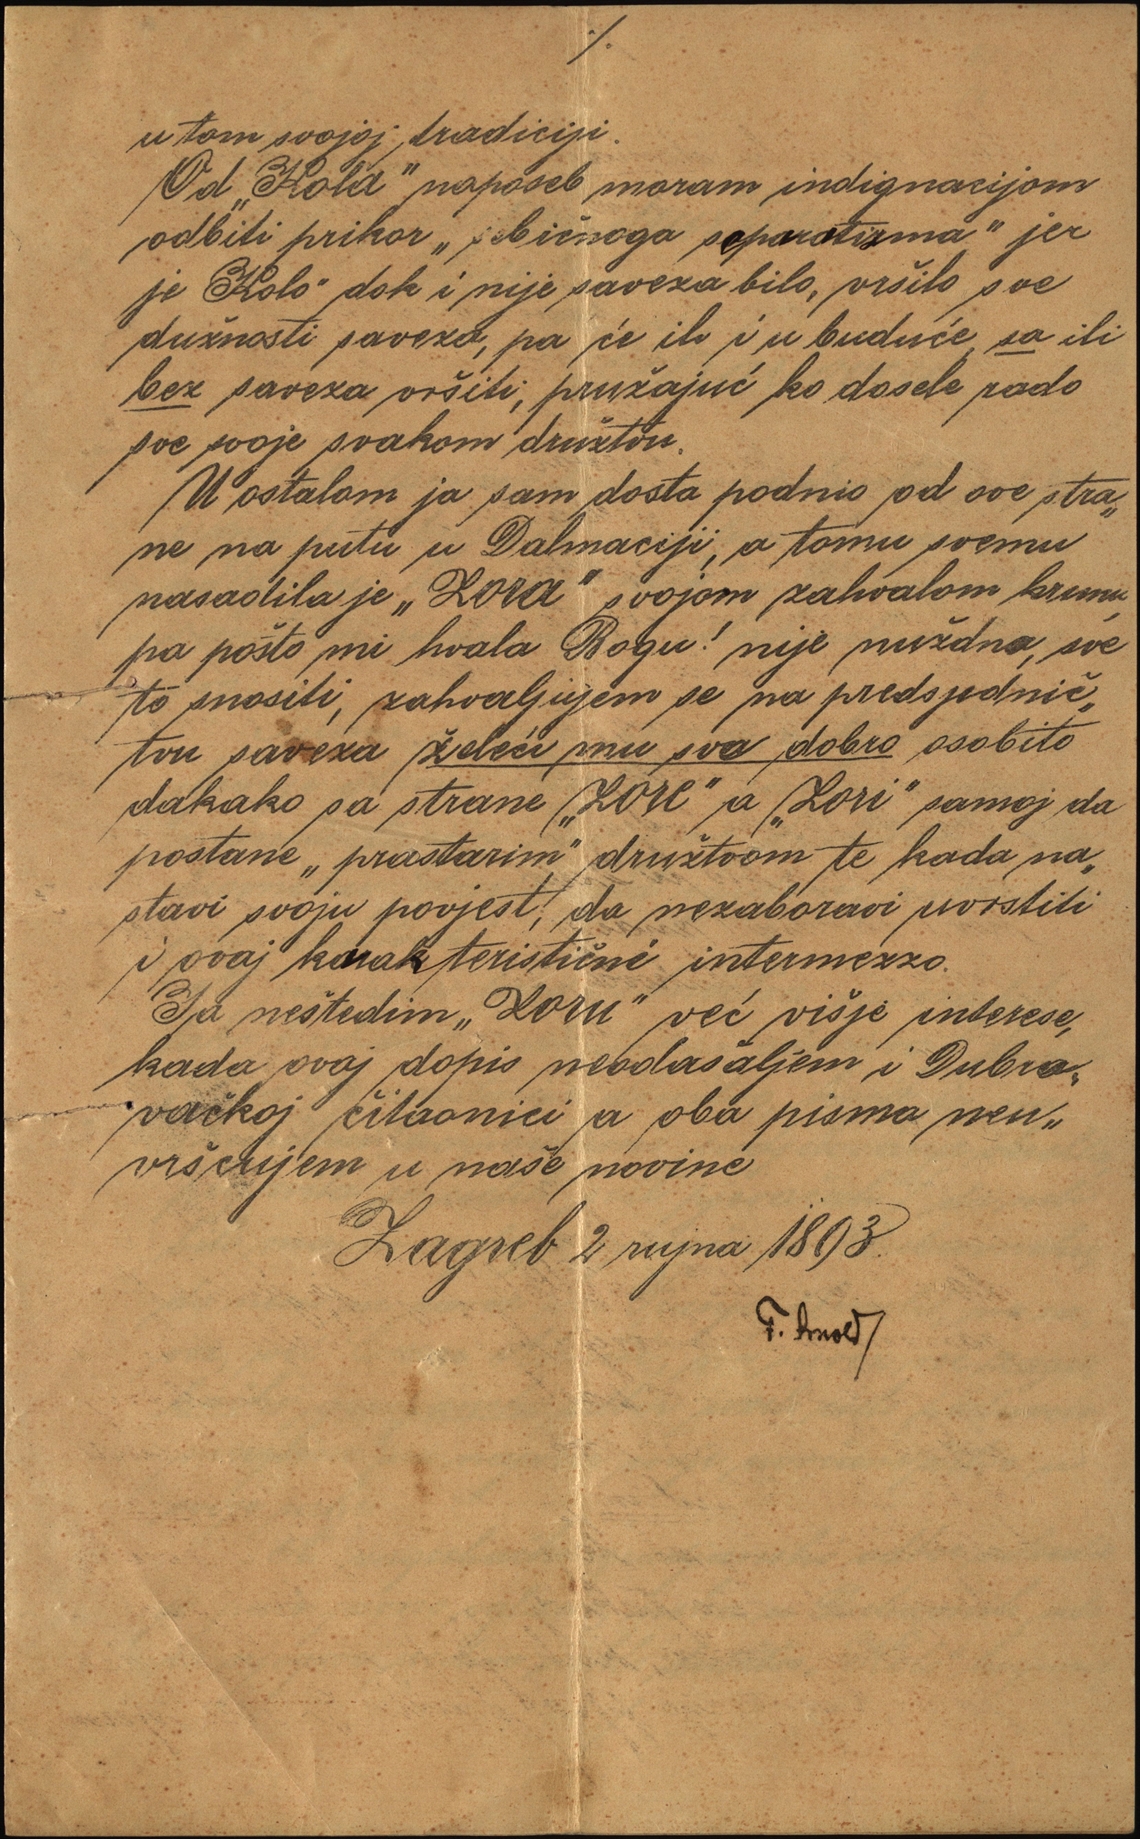 ./.
u tom svojoj tradiciji.
Od „Kola" naposeb moram indignacijom
odbiti prikor „sebičnoga separatizma" jer
je Kolo" dok i nije saveza bilo, vršilo sve
dužnosti saveza, pa će ih i u buduće sa ili
bez saveza vršiti, pružajuć ko dosele rado
sve svoje svakom družtvu.
U ostalom ja sam dosta podnio od ove stra„
ne na putu u Dalmaciji, a tomu svemu
nasadila je „Zora" svojom zahvalom krunu,
pa pošto mi hvala Bogu! nije nuždno, sve
to snositi, zahvaljujem se na predsjednič„
tvu saveza želeći mu sva dobro osobito
dakako sa strane „Zore" a „Zori" samoj da
postane „prastarim" družtvom te kada na„
stavi svoju povjest, da nezaboravi uvrstiti
i ovaj karakteristični intermezzo.
Ja neštedim „Zoru" već višje interese,
kada ovaj dopis neodašaljem i Dubro„
vačkoj čitaonici a oba pisma neu„
vršćujem u naše novine
Zagreb 2 rujna 1893.
F. Arnold